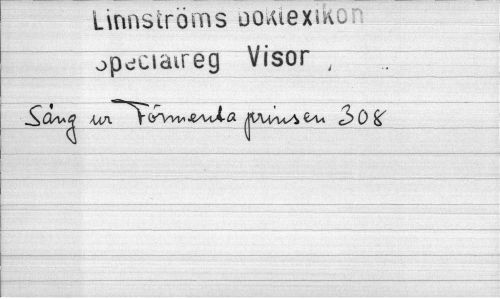 Linnströms boklexikon
Specialreg Visor
Sång ur Förmenta prinsen 308